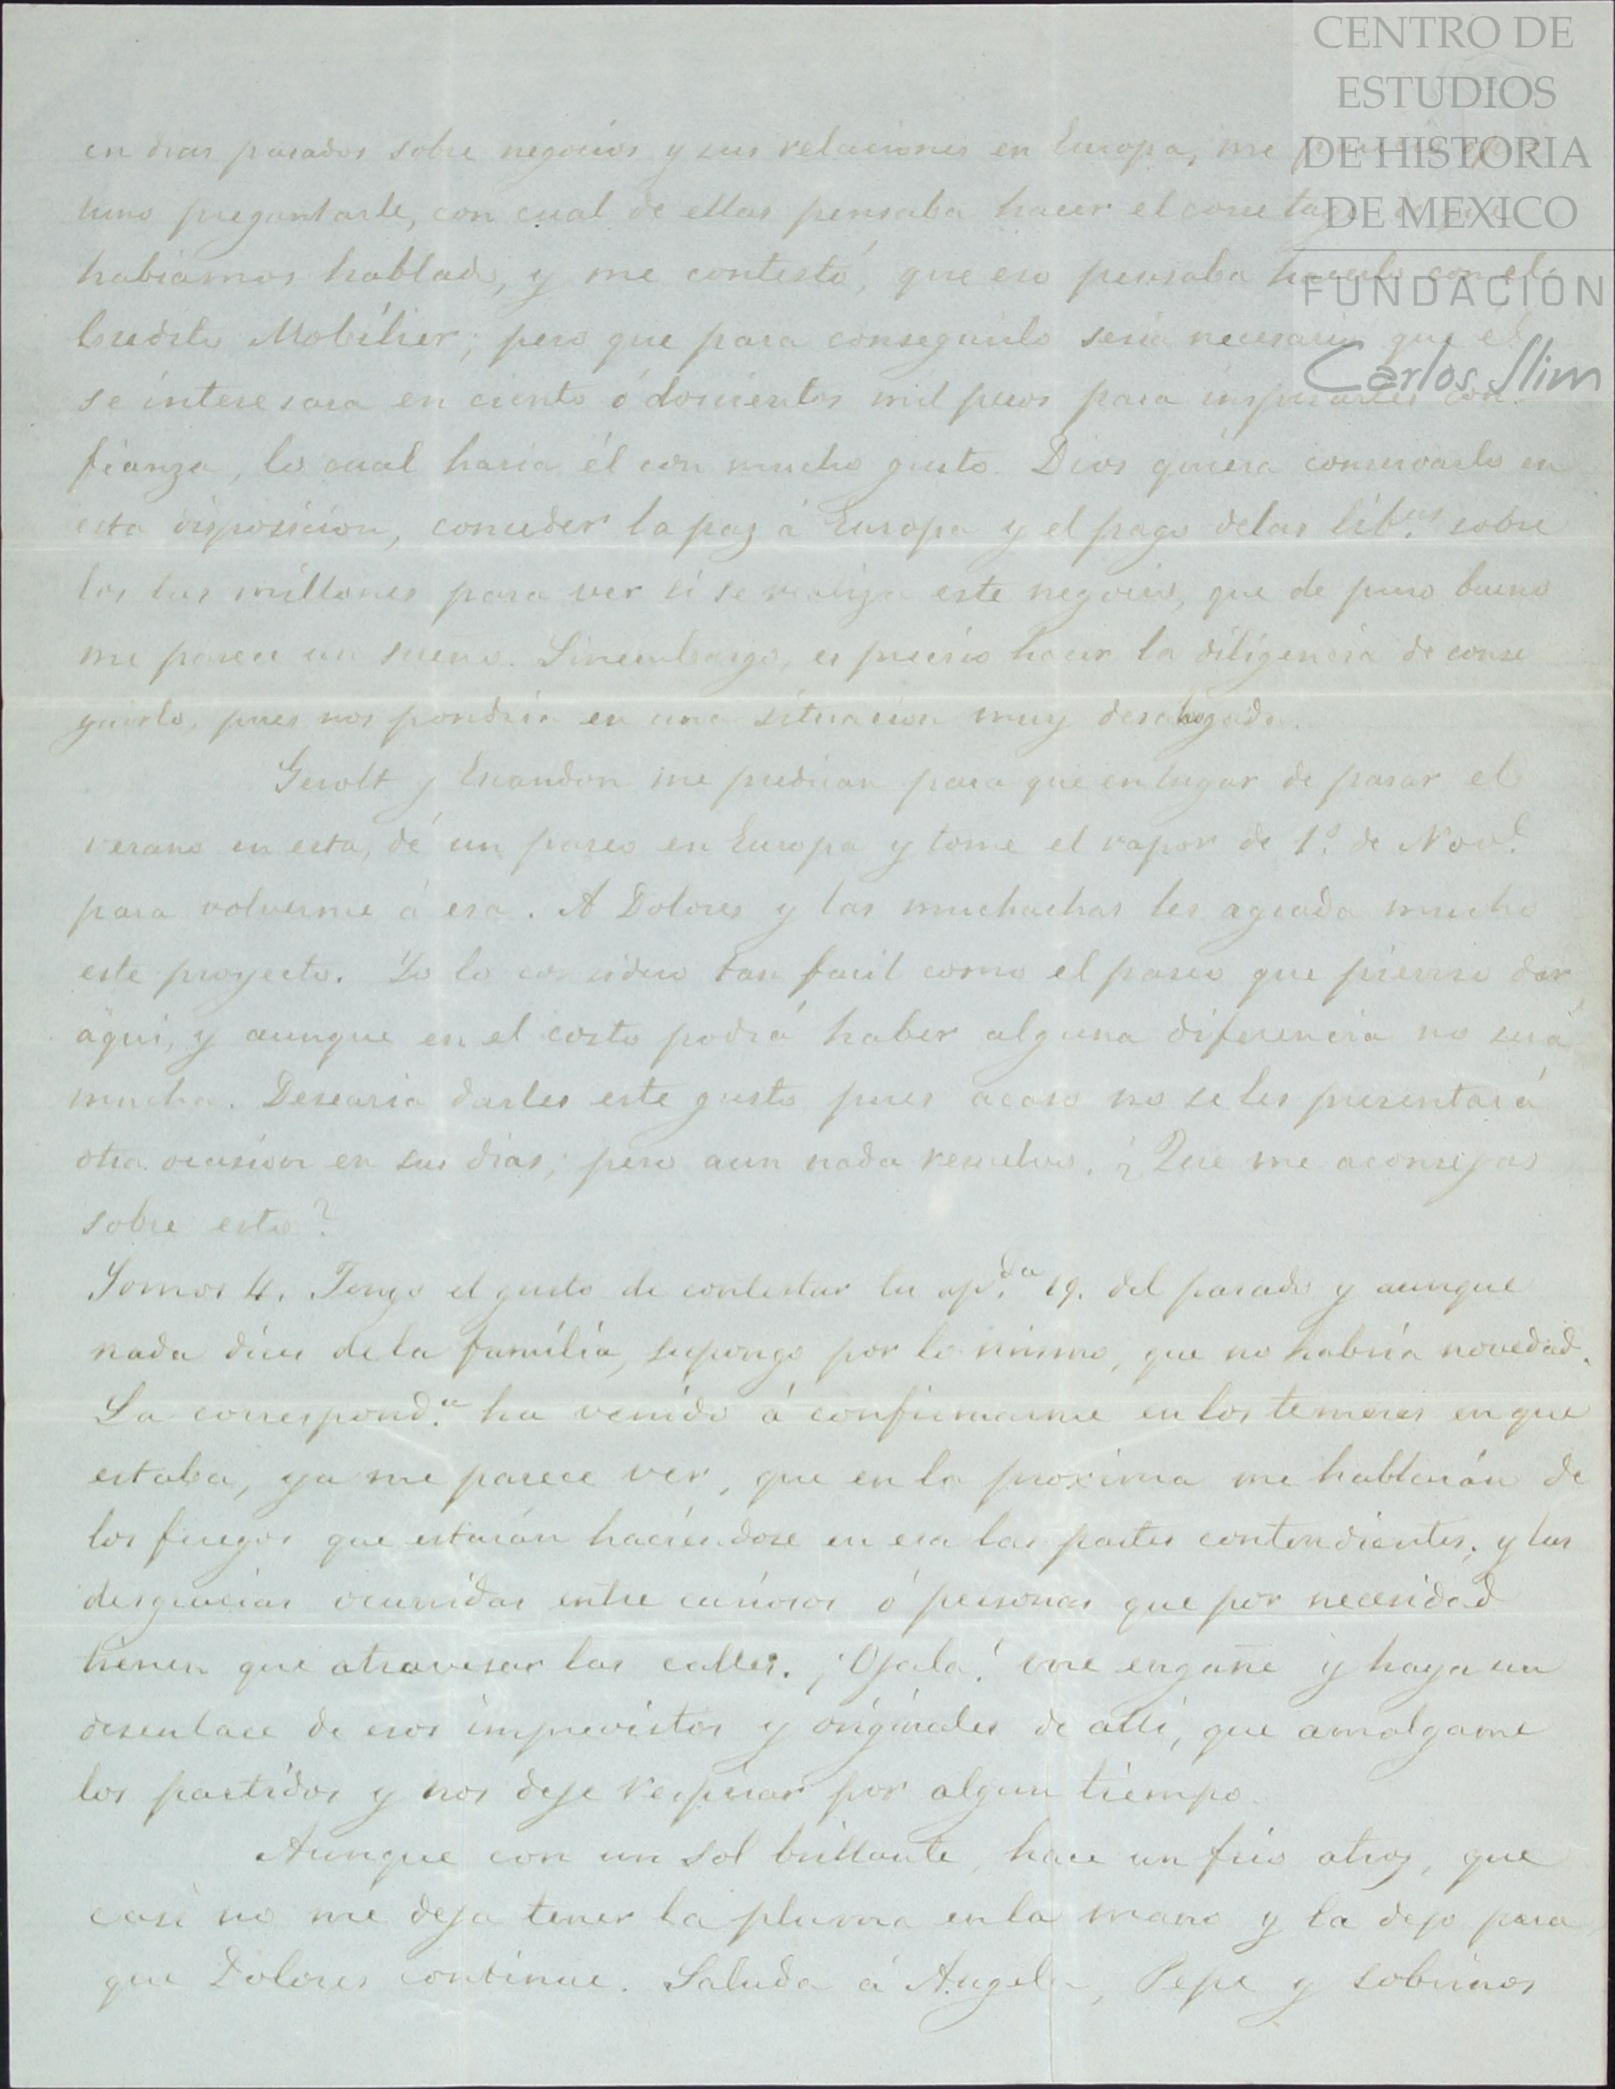 CENTRO DE
ESTUDIOS
DE HISTORIA
DE MEXICO
FUNDACIÓN
Carlos Slim
en dias pasados sobre negocios y sus relaciones en Europa, me
tuno preguntarle, con cual de ellas pensaba hacer el
habiamos hablado, y me contestó, que eso pensaba hacerlo con el
Credito Mobilier; pero que para conseguirlo seria necesario que él
se interesara en ciento ó doscientos mil pesos para inspirarles con
fianza, lo cual haria él con mucho gusto. Dios quiera conservarlo en
esta disposicion, conceder la paz á Europa y el pago delas lib.s sobre
los tres millones para ver si se realiza este negocio, que de puro bueno
me parece un sueno. Sinembargo, es preciso hacer la diligencia de conse
guirlo, pues nos pondria en una situacion muy desahogada.
Gerolt y Escandon me predican para que en lugar de pasar el
verano en esta, dé un paseo en Europa y tome el vapor de 1.º de Nov.e
para volverme á esa. A Dolores y las muchachas les agrada mucho
este proyecto. Yo lo considero tan facil como el paseo que pienso dar
aqui, y aunque en el costo podrá haber alguna diferencia no será
mucha. Desearia darles este gusto pues acaso no se les presentará
otra ocasion en sus dias; pero aun nada resuelvo. ¿Que me aconsejas
sobre esto?
Somos 4. Tengo el gusto de contestar tu ap.da 19. del pasado y aunque
nada dices dela familia, supongo por lo mismo, que no habria novedad.
La correspond.a ha venido á confirmarme en los temores en que
estaba, ya me parece ver, que en la proxima me hablarán de
los fuegos que estarán haciendose en esa las partes contendientes, y las
desgracias ocurridas entre curiosos ó personas que por necesidad
tienen que atravesar las calles. ¡Ojala! me engañe y haya un
desenlace de esos imprevistos y originales de alli, que amalgame
los partidos y nos deje respirar por algun tiempo.
Aunque con un sol brillante, hace un frio atroz, que
casi no me deja tener la pluma en la mano y la dejo para
que Dolores continue. Saluda á Angela, Pepe y sobrinos